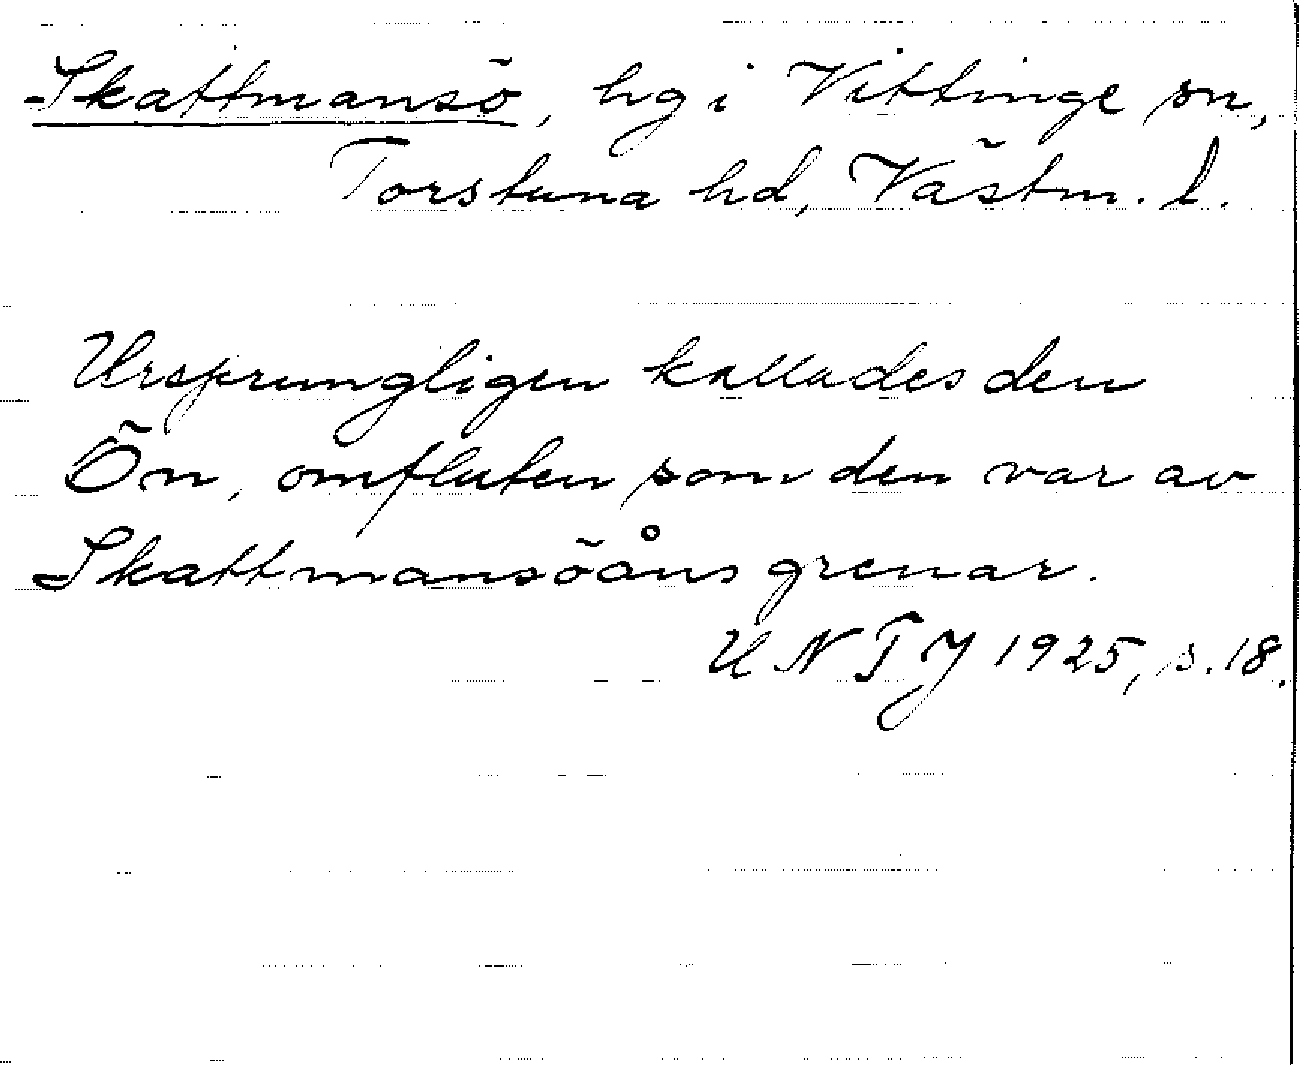 Skattmansö, hg i Vittinge sn,
Torstuna hd, Västm. l.
Ursprungligen kallades den
Ön, omfluten som den var av
Skattmansöåns grenar.
UNTJ 1925, s. 18.